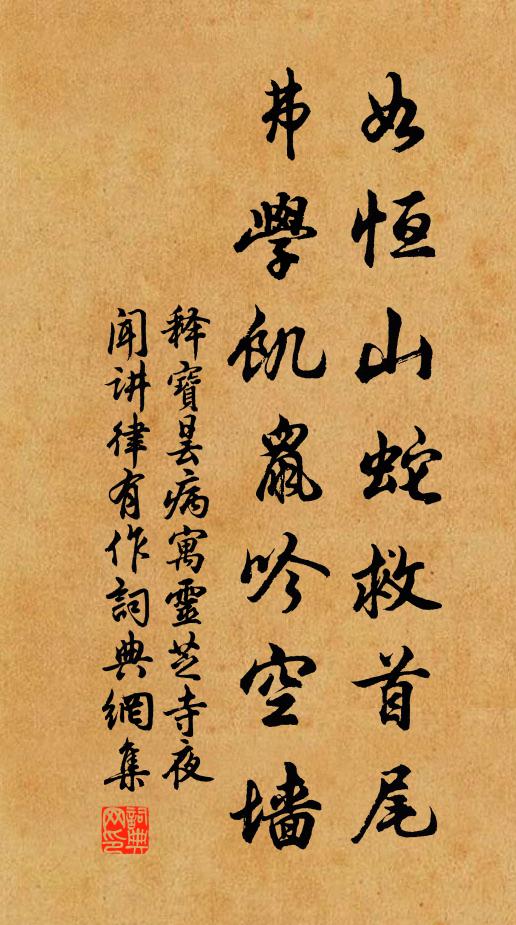 如恒山蛇救首尾
弗學飢鼠吟空墙
釋寶曇病寓靈芝寺夜
闻讲律有作詞典網集
詞典网印